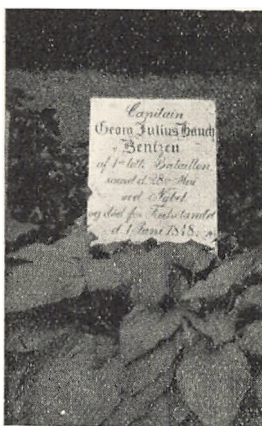 Capitain
Georg Julius Hauch
Bentzen
af 1ste lette Bataillon,
saaret d. 28de Mai
ved Nybøl
og død for Fædrelandet
d. 1 Juni 1848.